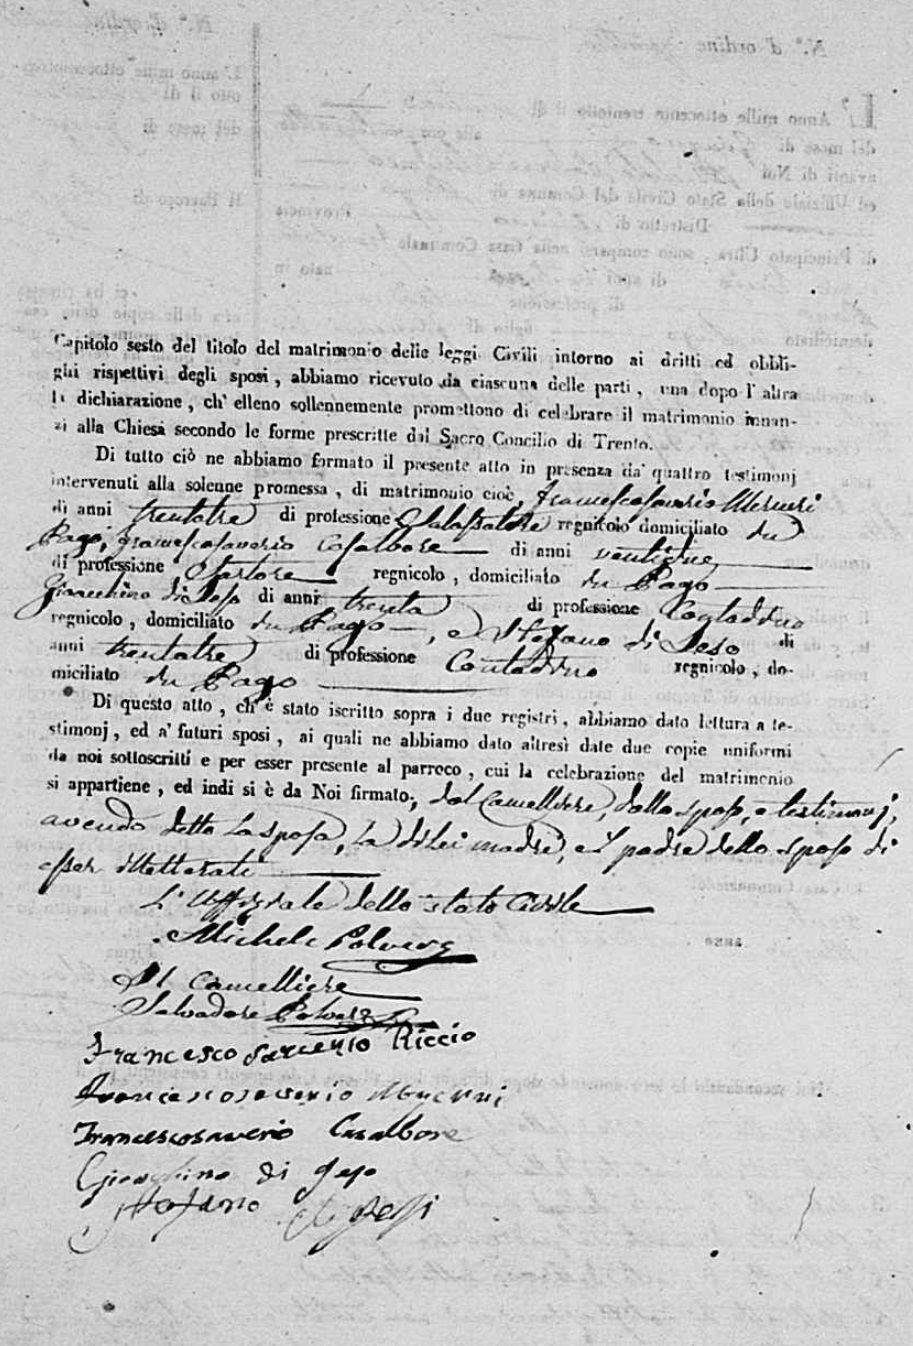 Capitolo sesto del titolo del matrimonio delle leggi Civili intorno ai dritti ed obbli-
ghi rispettivi degli sposi, abbiamo ricevuto da ciascuna delle parti, una dopo l' altra
la dichiarazione, ch' elleno sollennemente promettono di celebrare il matrimonio innan-
zi alla Chiesa secondo le forme prescritte dal Sacro Concilio di Trento.
Di tutto ciò ne abbiamo formato il presente atto in presenza da' quattro testimonj
intervenuti alla solenne promessa, di matrimonio cioè, Francescosaverio
di anni trentatre di professione Salassatore regnicolo domiciliato in
Pago, Francescosaverio Casalbore di anni
di professione Sartore regnicolo, domiciliato in Pago
Gioacchino di Jeso di anni trenta di professione Contadino
regnicolo, domiciliato in Pago, e Stefano di Jeso di
anni trentatre di professione Contadino regnicolo, do-
miciliato in Pago
Di questo atto, ch' è stato iscritto sopra i due registri, abbiamo dato lettura a te-
stimonj, ed a' futuri sposi, ai quali ne abbiamo dato altresì date due copie uniformi
da noi sottoscritti e per esser presente al parroco, cui la celebrazione del matrimonio
si appartiene, ed indi si è da Noi firmato, dal Cancelliere, dallo sposo, e testimonj,
avendo detto la sposa, la di lei madre, e il padre dello sposo di
esser illetterati
L' Uffiziale dello stato Civile
Michele Polvere
Il Cancelliere
Salvadore Polvere
Francesco Saverio Riccio
Francescosaverio
Francescosaverio Casalbore
Gioachino di Jeso
Stefano di Jesi